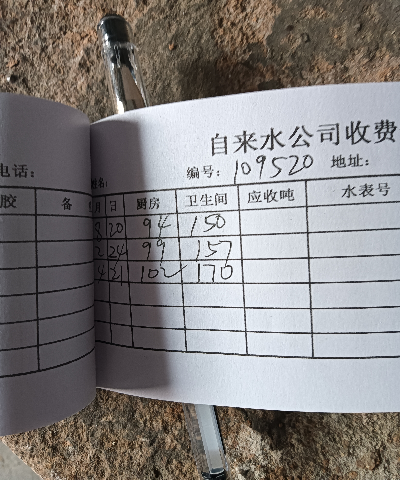 自来水公司收费
电话：
姓名：
编号：109520 地址：
胶 备 月 日 厨房 卫生间 应收吨 水表号
8 20 94 150
2 24 99 157
4 21 102 170